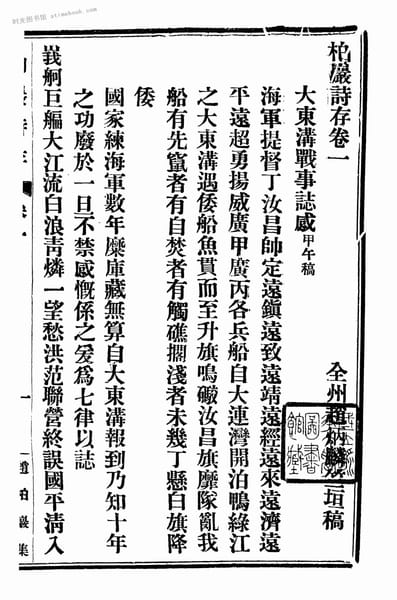 时光图书馆 atimebook.com
柏巖詩存卷一
全州趙炳麟竺垣稿
大東溝戰事誌感甲午稿
海軍提督丁汝昌帥定遠鎮遠致遠靖遠經遠來遠濟遠
平遠超勇揚威廣甲廣丙各兵船自大連灣開泊鴨綠江
之大東溝遇倭船魚貫而至升旗鳴礮汝昌旗靡隊亂我
船有先竄者有自焚者有觸礁擱淺者未幾丁懸白旗降
倭
國家練海軍數年糜庫藏無算自大東溝報到乃知十年
之功廢於一旦不禁感慨係之爰爲七律以誌
峩舸巨艑大江流白浪靑燐一望愁洪范聯營終誤國平淸入
一
趙柏巖集